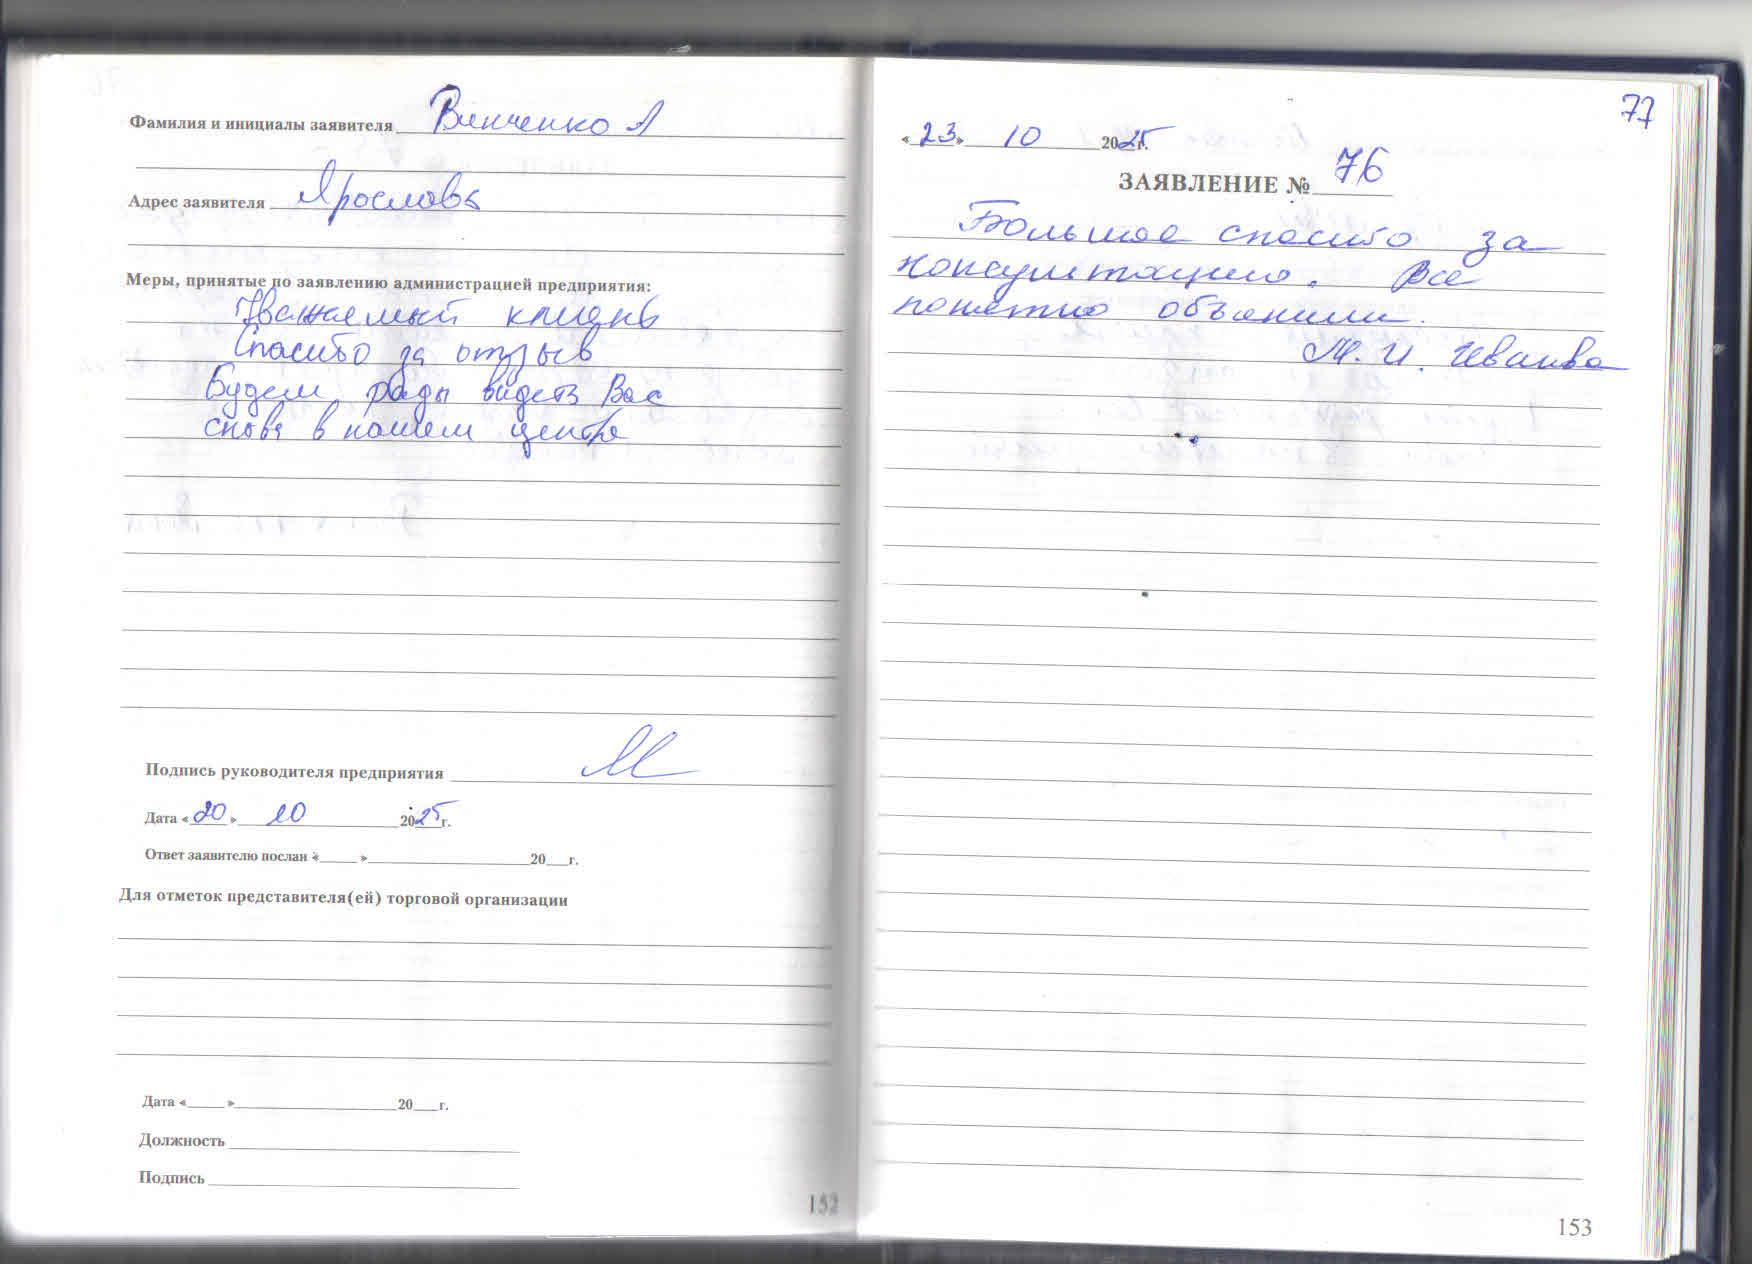 Фамилия и инициалы заявителя Винченко А
Адрес заявителя Ярославль
Меры, принятые по заявлению администрацией предприятия:
Уважаемый клиент
Спасибо за отзыв
Будем рады видеть Вас
снова в нашем центре
Подпись руководителя предприятия
Дата «20» 10 2025г.
Ответ заявителю послан «____» ____ 20__г.
Для отметок представителя(ей) торговой организации
Дата «____» ____ 20__г.
Должность
Подпись
152
77
«23» 10 2025г.
ЗАЯВЛЕНИЕ № 76
Большое спасибо за
консультацию. Все
понятно объяснили.
М. И. Иванова
153